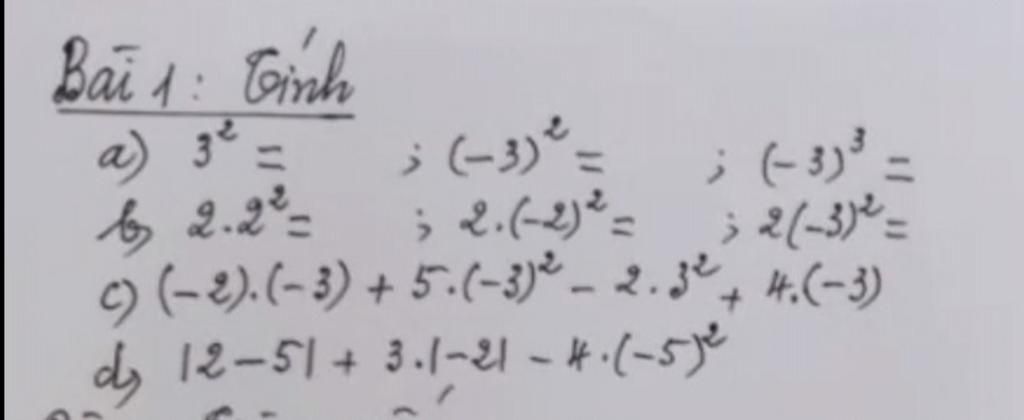 Bài 1: Tính
a) 3² = ; (-3)² = ; (-3)³ =
b) 2.2² = ; 2.(-2)² = ; 2(-3)² =
c) (-2).(-3) + 5.(-3)² - 2.3² + 4.(-3)
d) |2-5| + 3.|-2| - 4.(-5)²